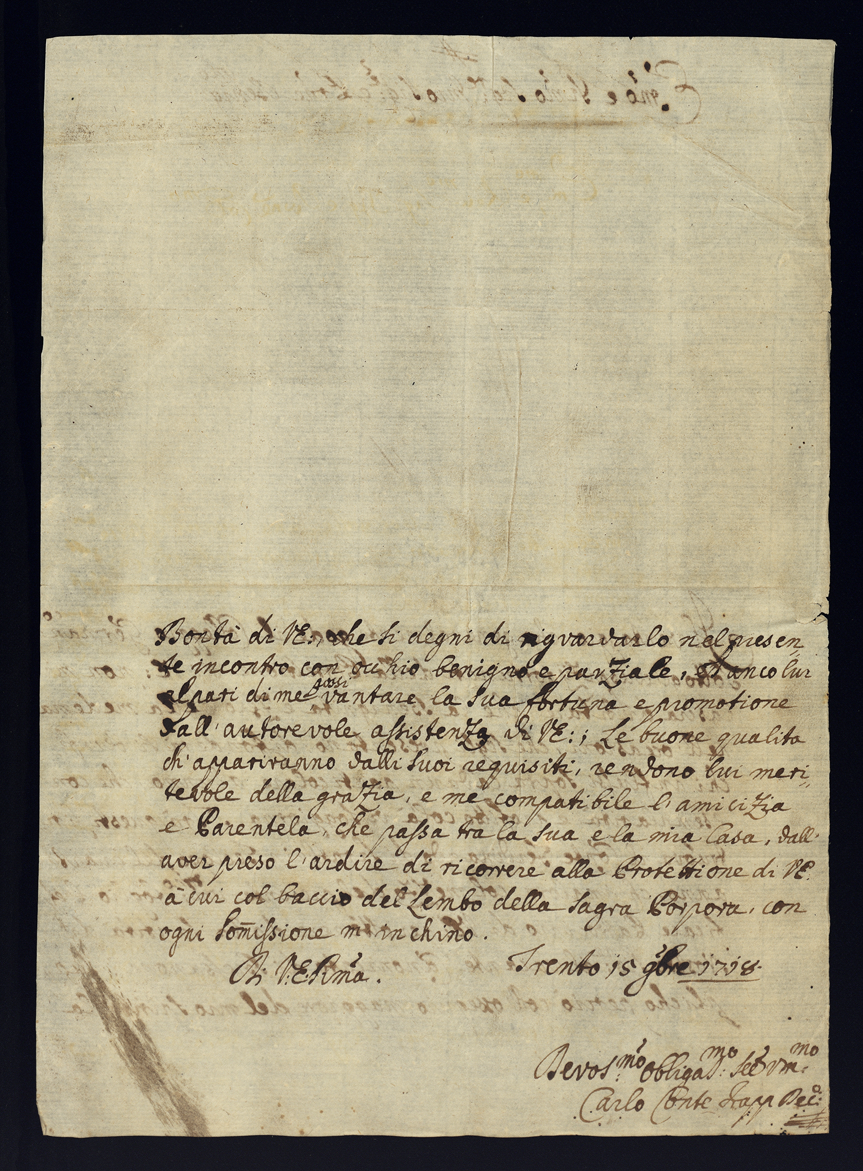 Bontà di VE:, che si degni di riguardarlo nel presen
te incontro con occhio benigno e parziale, ch'anco lui
al pari di me possi vantare la sua fortuna e promotione
dall'autorevole assistenza di VE:; Le buone qualità
ch'appariranno dalli suoi requisiti, rendono lui meri,,
tevole della grazia, e me compatibile l'amicizia
e Parentela, che passa tra la sua e la mia Casa, dall'
aver preso l'ardire di ricorrere alla Protettione di VE.
à cui col baccio del Lembo della Sagra Porpora, con
ogni Som̃issione m'inchino.
Di V.E Rma. Trento 15 9bre 1718.
Devos:mo obliga:mo Ser
Carlo Conte Trapp Dec: